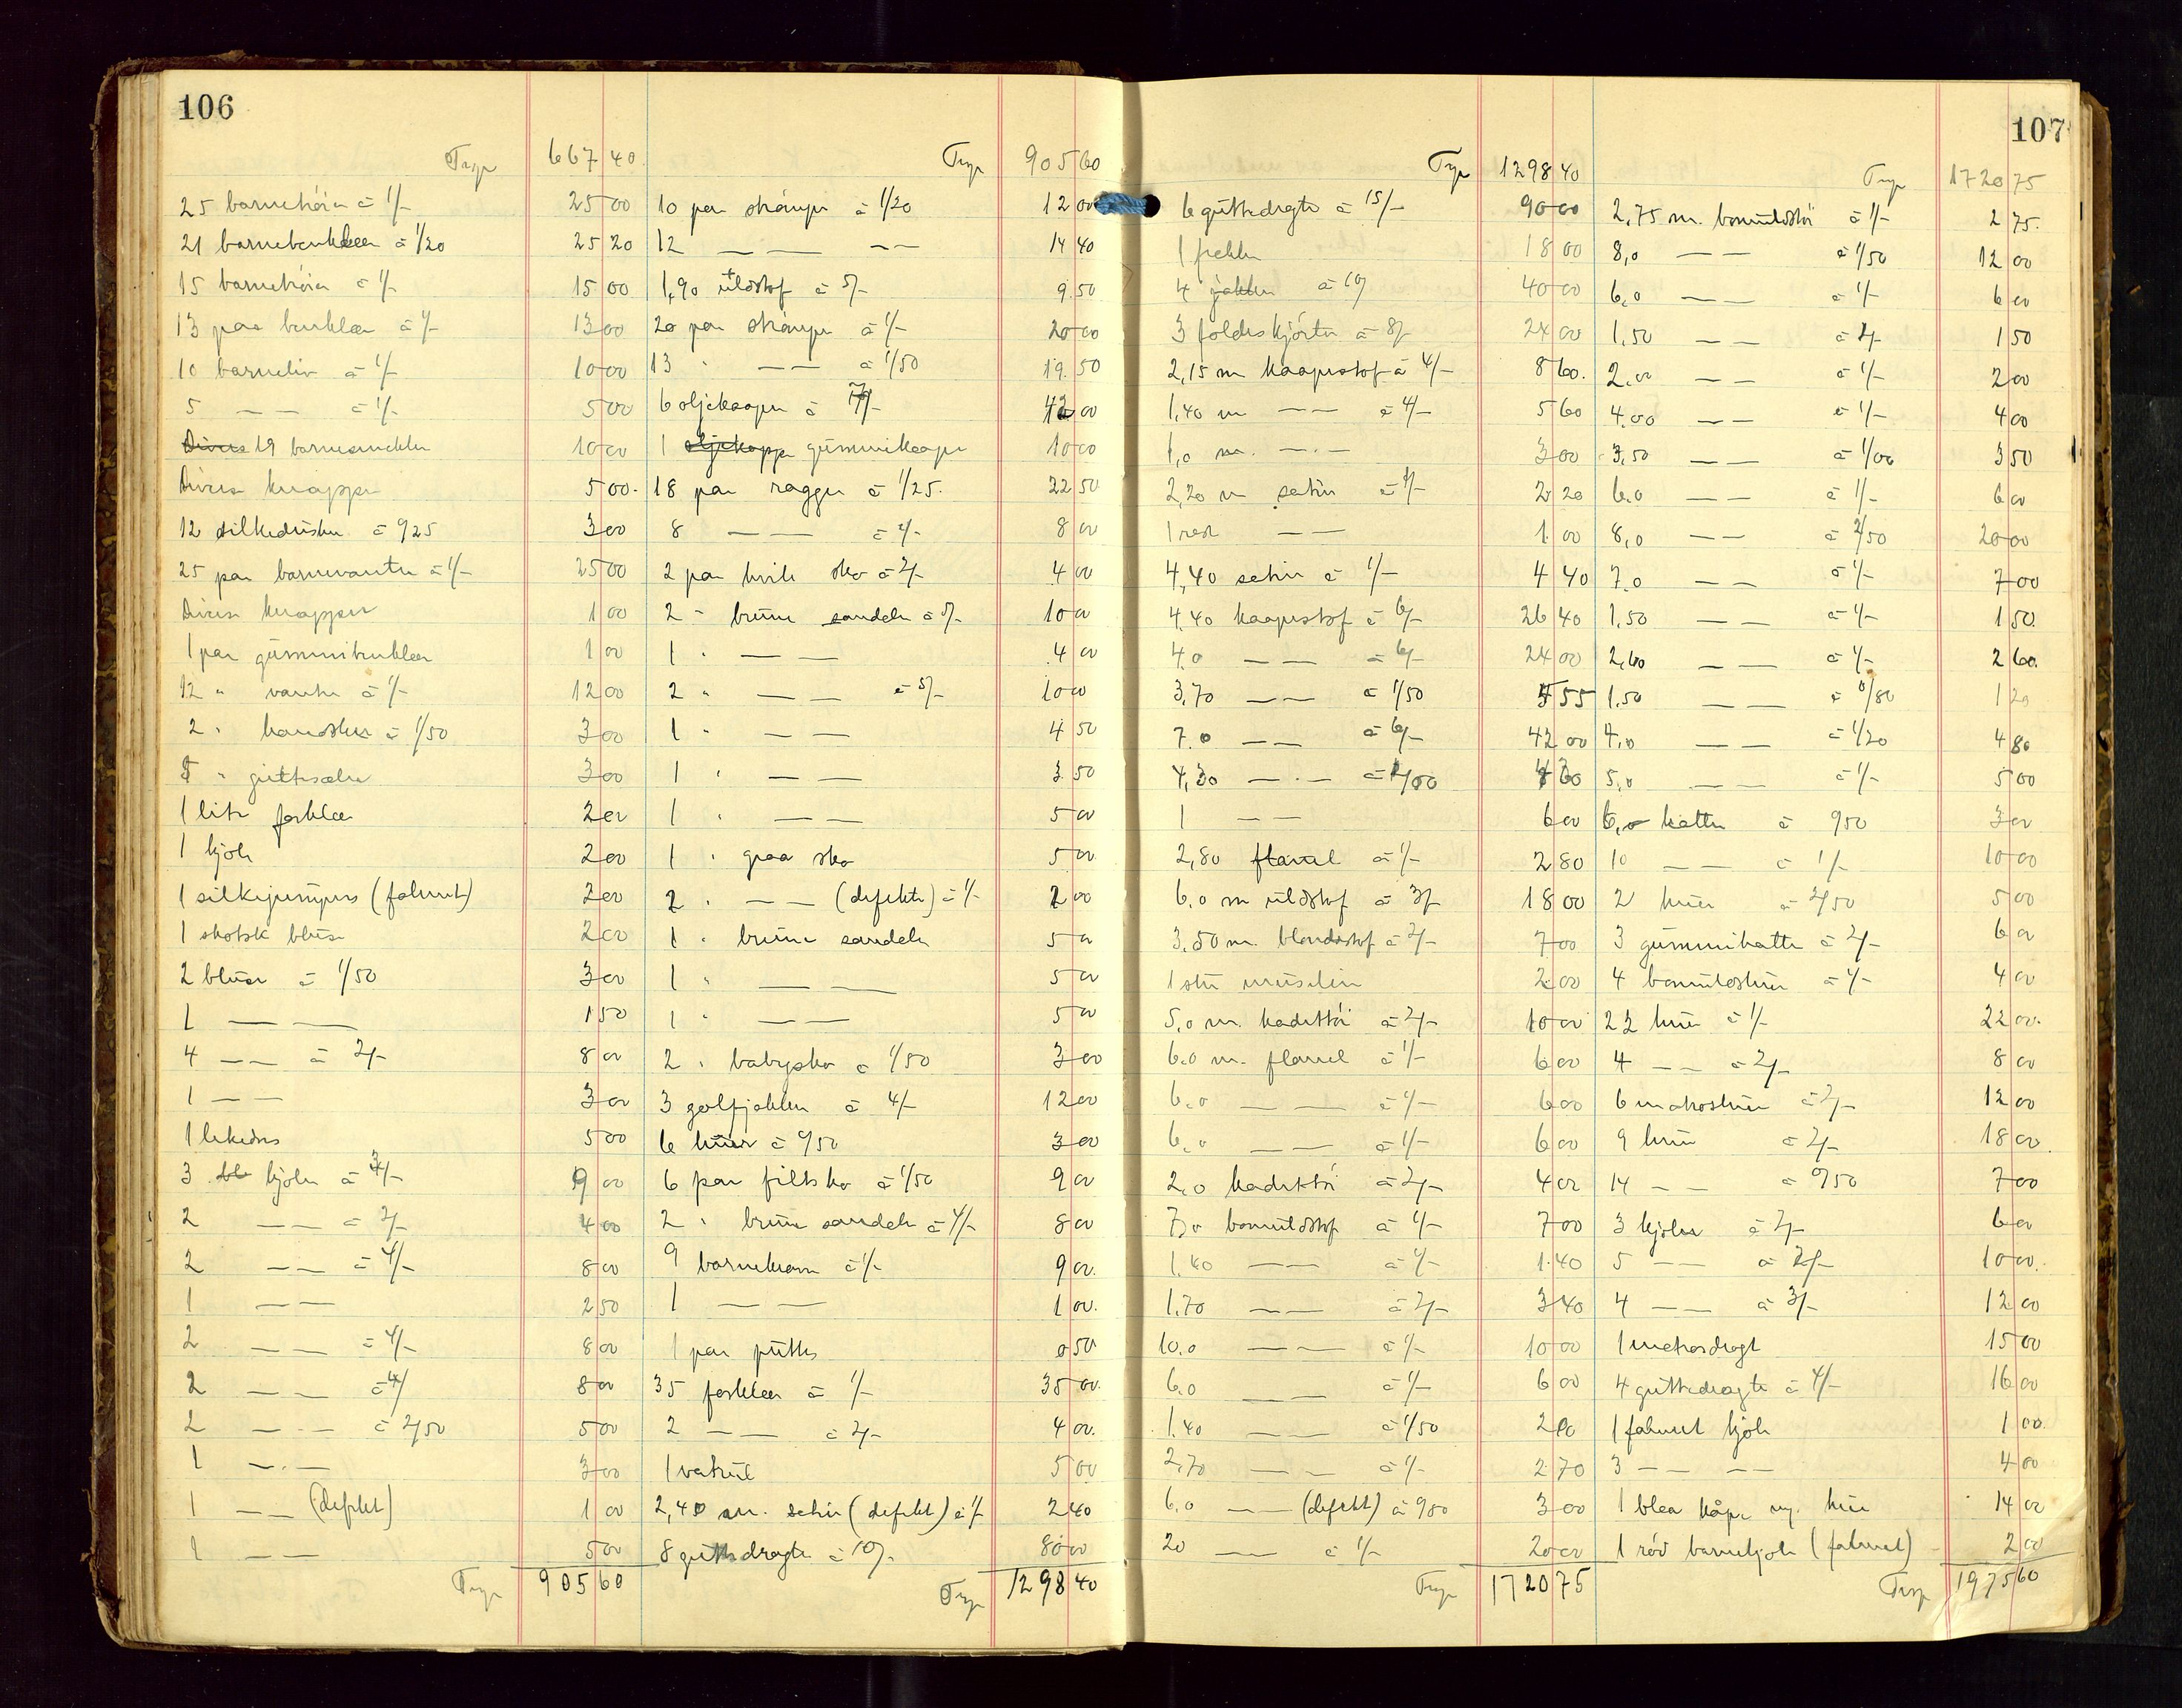 106
Trsp 667 40
25 barnetröier à 1/- 25 00
21 barnebenklær à 1/20 25 20
15 barnetröier à 1/- 15 00
13 par benklær à 1/- 13 00
10 barneliv à 1/- 10 00
5 — — à 1/- 5 00
Divers 19 barnesmekker 10 00
Divers knapper 5 00
12 silkeduske à 0/25 3 00
25 par barnevanter à 1/- 25 00
Divers knapper 1 00
1 par gummibenklær 1 00
12 " vanter à 1/- 12 00
2 " hansker à 1/50 3 00
" guttesæler 3 00
1 lite forklæ 2 00
1 kjole 2 00
1 silkejumpers (falmet) 2 00
1 skotsk bluse 2 00
2 bluser à 1/50 3 00
1 — — 1 50
4 — — à 2/- 8 00
1 — — 3 00
1 lekedres 5 00
3 kjoler à 3/- 9 00
2 — — à 2/- 4 00
2 — — à 4/- 8 00
1 — — 2 50
2 — — à 4/- 8 00
2 — — à 4/ 8 00
2 — — à 2/50 5 00
1 — — 3 00
1 — — (defekt) 1 00
1 — — 5 00
Trsp 905 60
Trsp 905 60
10 par strömper à 1/20 12 00
12 — — — — 14 40
1,90 uldstof à 5/- 9 50
20 par strömper à 1/- 20 00
13 " — — à 1/50 19 50
6 oljekaaper à 7/- 42 00
1 oljekappe gummikaape 10 00
18 par ragger à 1/25 22 50
8 — — à 1/- 8 00
2 par hvite sko à 2/- 4 00
2 " brune sandaler à 5/- 10 00
1 " — — 4 00
2 " — — à 5/- 10 00
1 " — — 4 50
1 " — — 3 50
1 " — — 5 00
1 " graa sko 5 00
2 " — — (defekte) à 1/- 2 00
1 " brune sandaler 5 00
1 " — — 5 00
1 " — — 5 00
2 " babysko à 1/50 3 00
3 golfjakker à 4/- 12 00
6 huer à 0/50 3 00
6 par filtsko à 1/50 9 00
2 " brune sandaler à 4/- 8 00
9 barnekraver à 1/- 9 00
1 — — 1 00
1 par puttis 0 50
35 forklær à 1/- 35 00
2 — — à 2/- 4 00
1 5 00
2,40 m. satin (defekt) à 1/- 2 40
8 guttedragter à 10/- 80 00
Trsp 1298 40
107
Trsp 1298 40
6 guttedragter à 15/- 90 00
1 frakke 18 00
4 jakker à 10/ 40 00
3 foldeskjörter à 8/- 24 00
2,15 m kaapestof à 4/- 8 60
1,40 m — — à 4/- 5 60
1,0 m. — — 3 00
2,20 m satin à 1/- 2 20
1 rest — — 1 00
4,40 satin à 1/- 4 40
4,40 kaapestof à 6/- 26 40
4.0 — — à 6/- 24 00
3,70 — — à 1/50 5 55
7.0 — — à 6/- 42 00
4,30 — — à 1/00 4 30
1 — — 6 00
2,80 flanel à 1/- 2 80
6.0 m uldstof à 3/- 18 00
3,50 m. blondestof à 2/- 7 00
1 stu muselin 2 00
5,0 m. kadettöi à 2/- 10 00
6.0 m. flanel à 1/- 6 00
6.0 — — à 1/- 6 00
6.0 — — à 1/- 6 00
2,0 kadettöi à 2/- 4 00
7,0 bomuldstof à 1/- 7 00
1.40 — — à 1/- 1.40
1.70 — — à 2/- 3 40
10.0 — — à 1/- 10 00
6.0 — — à 1/- 6 00
1.40 — — à 1/50 2 10
2,70 — — à 1/- 2 70
6.0 — — (defekt) à 0/50 3 00
20 — — à 1/- 20 00
Trsp 1720 75
Trsp 1720 75
2,75 m. bomuldstöi à 1/- 2 75
8,0 — — à 1/50 12 00
6.0 — — à 1/- 6 00
1,50 — — à 1/- 1 50
2.00 — — à 1/- 2 00
4.00 — — à 1/- 4 00
3,50 — — à 1/00 3 50
6.0 — — à 1/- 6 00
8,0 — — à 2/50 20 00
7.0 — — à 1/- 7 00
1,50 — — à 1/- 1 50
2,60 — — à 1/- 2 60
1.50 — — à 0/80 1 20
4,0 — — à 1/20 4 80
5,0 — — à 1/- 5 00
6, hatter à 0/50 3 00
10 — — à 1/- 10 00
2 huer à 2/50 5 00
3 gummihatter à 2/- 6 00
4 bomuldshuer à 1/- 4 00
22 huer à 1/- 22 00
4 — — à 2/- 8 00
6 matroshuer à 2/- 12 00
9 huer à 2/- 18 00
14 — — à 0/50 7 00
3 kjoler à 2/- 6 00
5 — — à 2/- 10 00
4 — — à 3/- 12 00
1 matrosdragt 15 00
4 guttedragter à 4/- 16 00
1 falmet kjole 1 00
3 — — — — 4 00
1 blaa kåpe m/ hue 14 00
1 röd barnekjole (falmet) 2 00
Trsp 1975 60